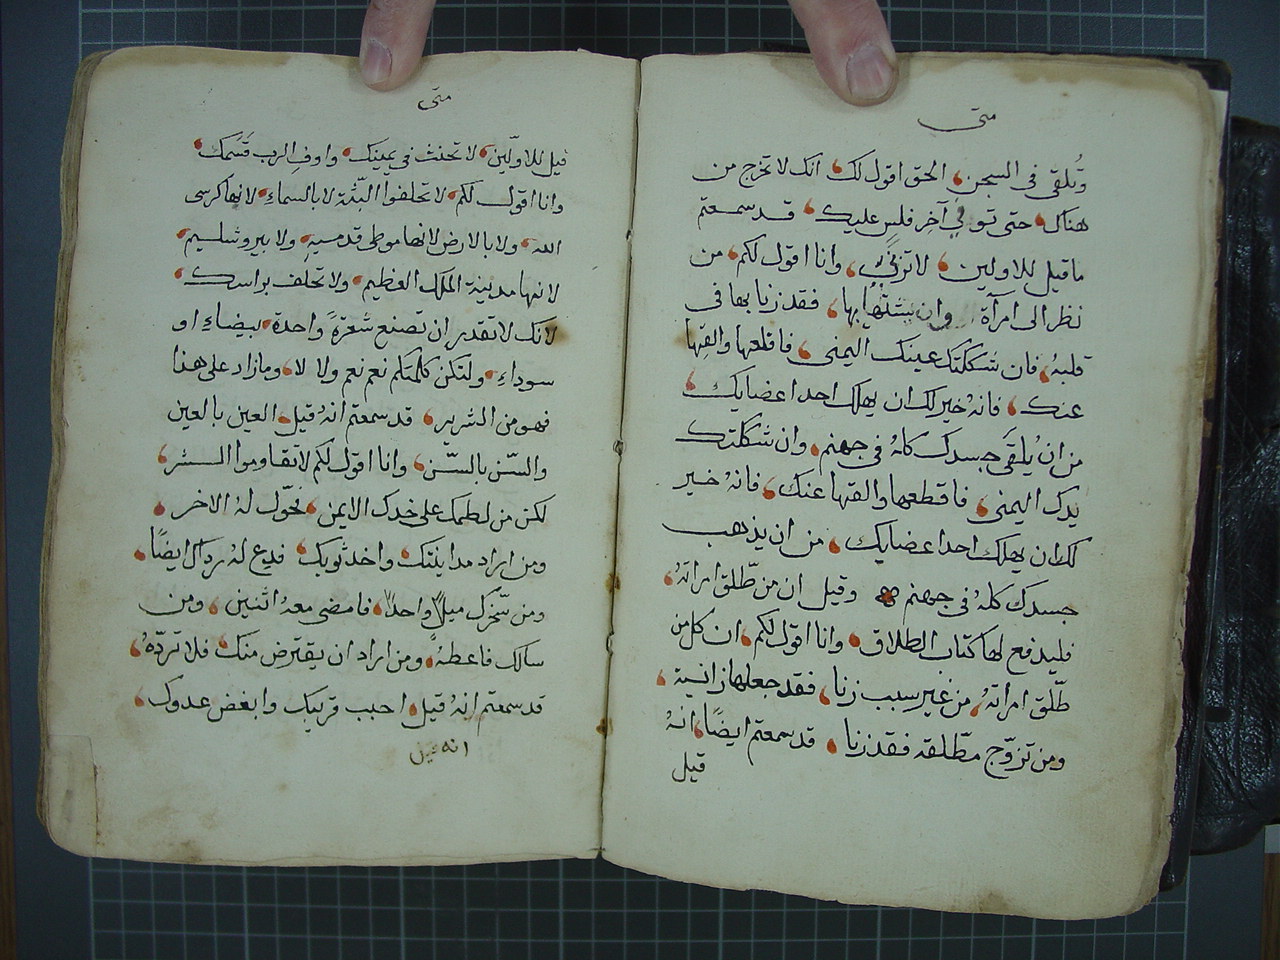 متى
وتُلقى في السجن، الحق اقول لك، انك لا تخرج من
هناك، حتى توفي آخر فلس عليك، قد سمعتم
ما قيل للاولين، لا تزنِ، وانا اقول لكم، من
نظر الى امرآة وان يشتهيا بها، فقد زنا بها في
قلبهُ، فان شككتك عينك اليمنى، فاقلعها والقِها
عنك، فانهُ خير لك ان يهلك احد اعضايك،
من ان يُلقَى جسدك كلهُ في جهنم، وان شككتك
يدك اليمنى، فاقطعها والقها عنك، فانهُ خير
لك ان يهلك احد اعضايك، من ان يذهب
جسدك كلهُ في جهنم وقيل ان من طلّق امراتهُ،
فليدفع لها كتاب الطلاق، وانا اقول لكم، ان كل من
طلّق امراتهُ، من غير سبب زنا، فقد جعلها زانية،
ومن تزوّج مطّلقه فقد زنا، قد سمعتم ايضًا، انهُ
قيل
متى
قيل للاولّين، لا تحنث في يمينك، واوفِ الرب قَسَمك،
وانا اقول لكم، لا تحلفوا البتّة لا بالسماءِ، لانها كرسى
الله، ولا بالارض لانها موطى قدميهِ، ولا بيروشليم،
لانها مدينة الملك العظيم، ولا تحلف براسك،
لانك لا تقدر ان تصنع شعرةً واحدة، بيضاءِ او
سوداءِ، ولتكن كلمتكم نعم نعم ولا لا، وما زاد على هذا
فهو من الشرير، قد سمعتم انهُ قيل، العين بالعين
والسّن بالسّن، وانا اقول لكم لا تقاوموا الشر،
لكن من لطمك على خدك الايمن، فحّول لهُ الاخر،
ومن اراد مداينتك، واخذ ثوبك، فدع لهُ رداك ايضًا،
ومن سّخرك ميلاً واحداً، فامضى معهُ اثنين، ومن
سالك فاعطهُ، ومن اراد ان يقترض منك، فلا تردّهُ،
قد سمعتم انهُ قيل، احبب قريبك وابغض عدوك،
انه قيل